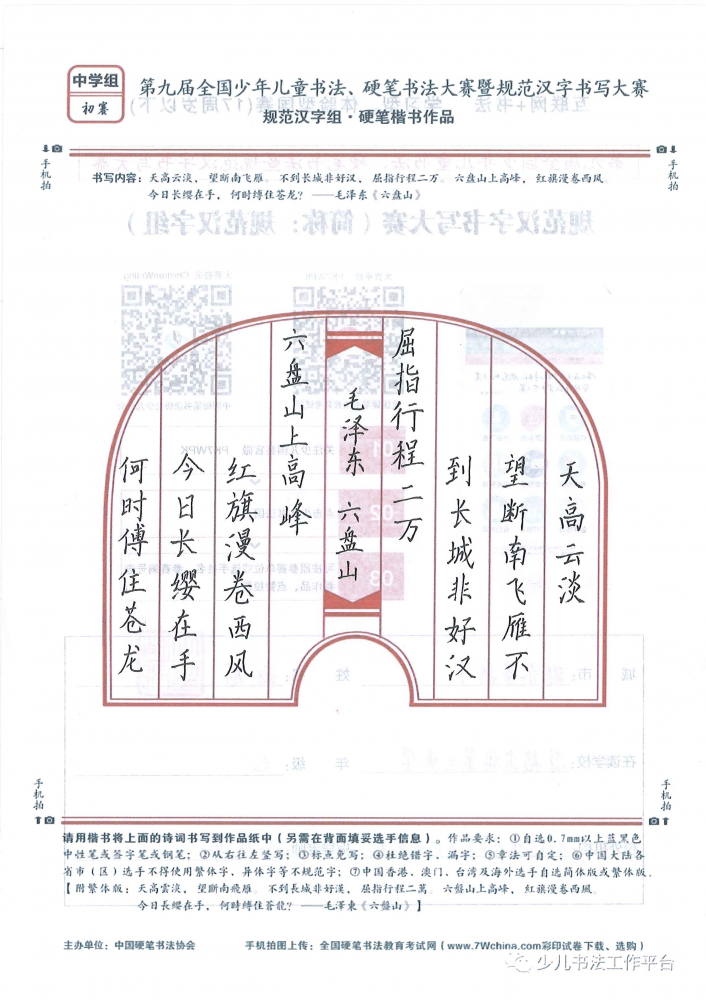 中学组
初赛
第九届全国少年儿童书法、硬笔书法大赛暨规范汉字书写大赛
规范汉字组·硬笔楷书作品
手机拍
手机拍
书写内容：天高云淡，望断南飞雁。不到长城非好汉，屈指行程二万。六盘山上高峰，红旗漫卷西风。
今日长缨在手，何时缚住苍龙？——毛泽东《六盘山》
天高云淡
望断南飞雁不
到长城非好汉
屈指行程二万
毛泽东 六盘山
六盘山上高峰
红旗漫卷西风
今日长缨在手
何时傅住苍龙
手机拍
手机拍
请用楷书将上面的诗词书写到作品纸中（另需在背面填妥选手信息）。作品要求：①自选0.7mm以上蓝黑色
中性笔或签字笔或钢笔；②从右往左竖写；③标点免写；④杜绝错字、漏字；⑤章法可自定；⑥中国大陆各
省市（区）选手不得使用繁体字，异体字等不规范字；⑦中国香港、澳门、台湾及海外选手自选简体版或繁体版。
【附繁体版：天高雲淡，望斷南飛雁。不到長城非好漢，屈指行程二萬。六盤山上高峰，紅旗漫卷西風。
今日長纓在手，何時縛住蒼龍？——毛澤東《六盤山》】
主办单位：中国硬笔书法协会
手机拍图上传：全国硬笔书法教育考试网（www.7Wchina.com彩印试卷下载、选购）
少儿书法工作平台